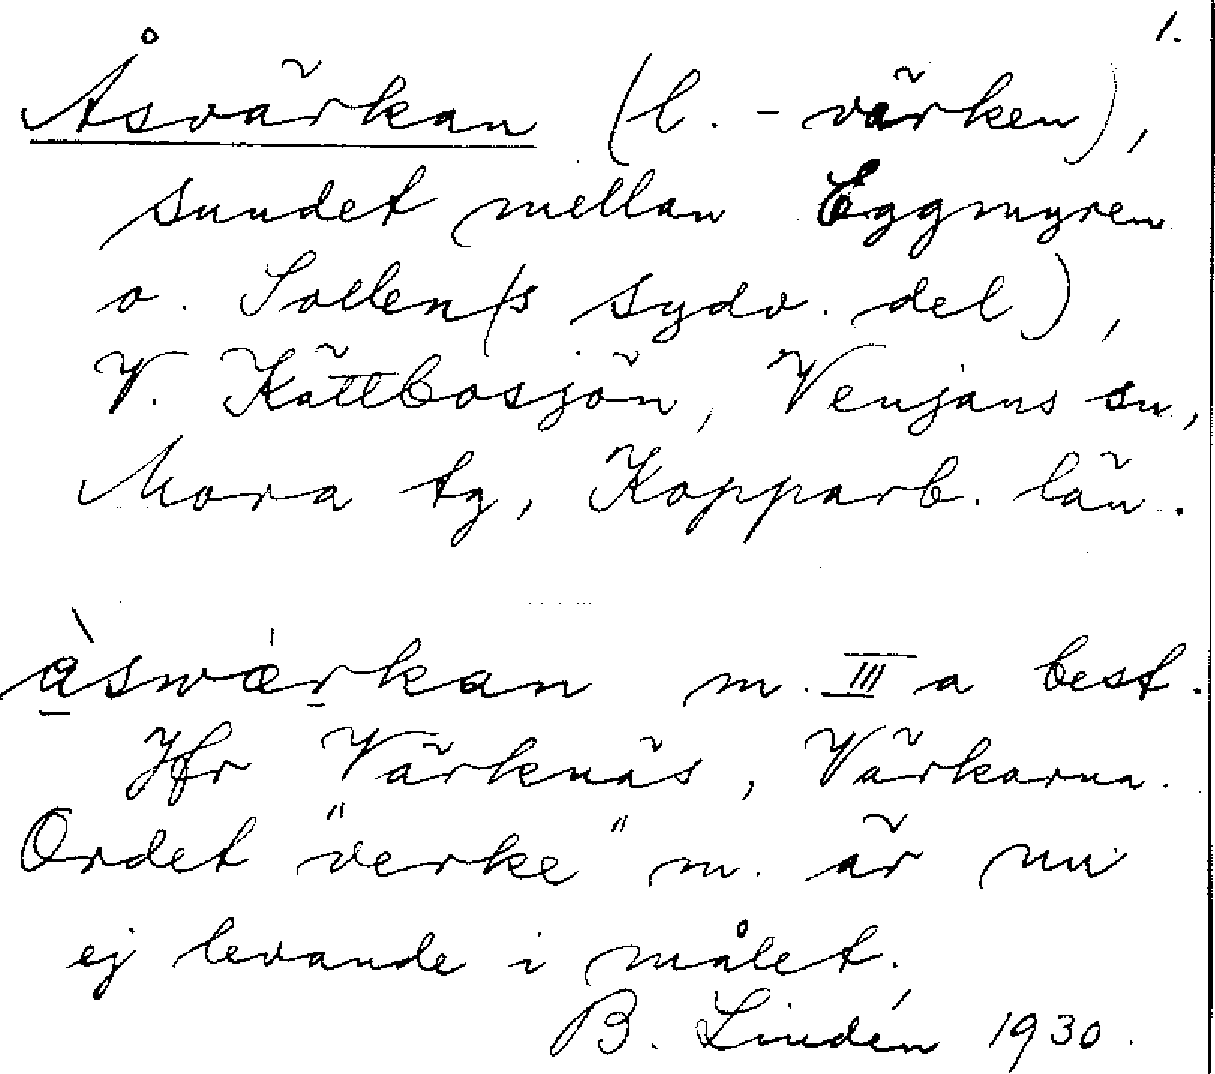 1.
Åsvärkan (l. -värken),
sundet mellan Eggmyren
o. Sollen(s sydv. del),
V. Kättbosjön, Venjans sn,
Mora tg, Kopparb. län.
àswærkan m. III a best.
Jfr Värknäs, Värkarna.
Ordet "verke" m. är nu
ej levande i målet.
B. Lindén 1930.